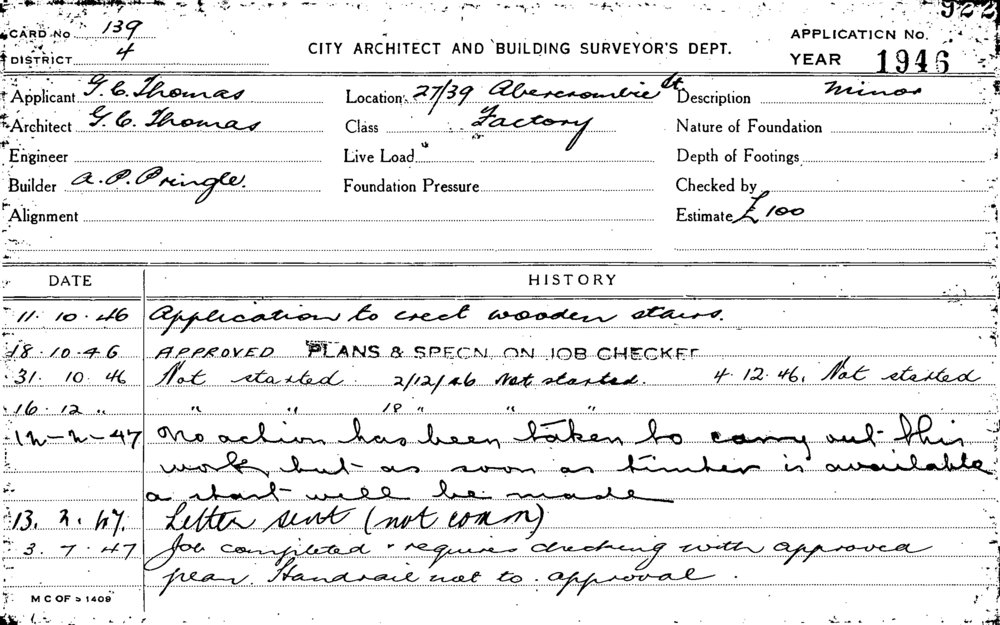 922
CARD No 139
DISTRICT 4
CITY ARCHITECT AND BUILDING SURVEYOR'S DEPT.
APPLICATION No.
YEAR 1946
Applicant G. C. Thomas
Location 27/39 Abercrombie St
Description Minor
Architect G. C. Thomas
Class Factory
Nature of Foundation
Engineer
Live Load
Depth of Footings
Builder A. P. Pringle.
Foundation Pressure
Checked by
Alignment
Estimate £100
DATE HISTORY
11. 10. 46 Application to erect wooden stairs.
18. 10. 46 APPROVED PLANS & SPECN. ON JOB CHECKED
31. 10. 46 Not started. 2/12/46 Not started. 4.12.46. Not started
16. 12 " " " 18 " " "
12-2-47 No action has been taken to carry out this
work but as soon as timber is available
a start will be made
13. 2. 47. Letter sent (not comm)
3. 7. 47 Job completed & requires checking with approved
plan. Handrail not to approval.
M C OF S 1409